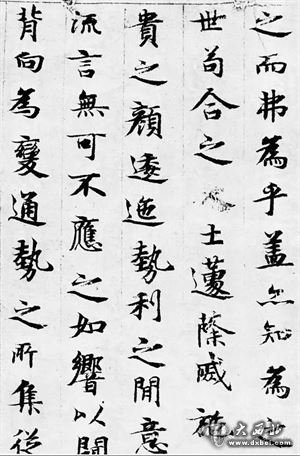 之而弗為乎蓋亦知為之
世苟合之士蘧蒢戚施
貴之顏逶迤勢利之間意
流言無可不應之如響以闚
背向為變通勢之所集從
大西北
www.dxbei.com